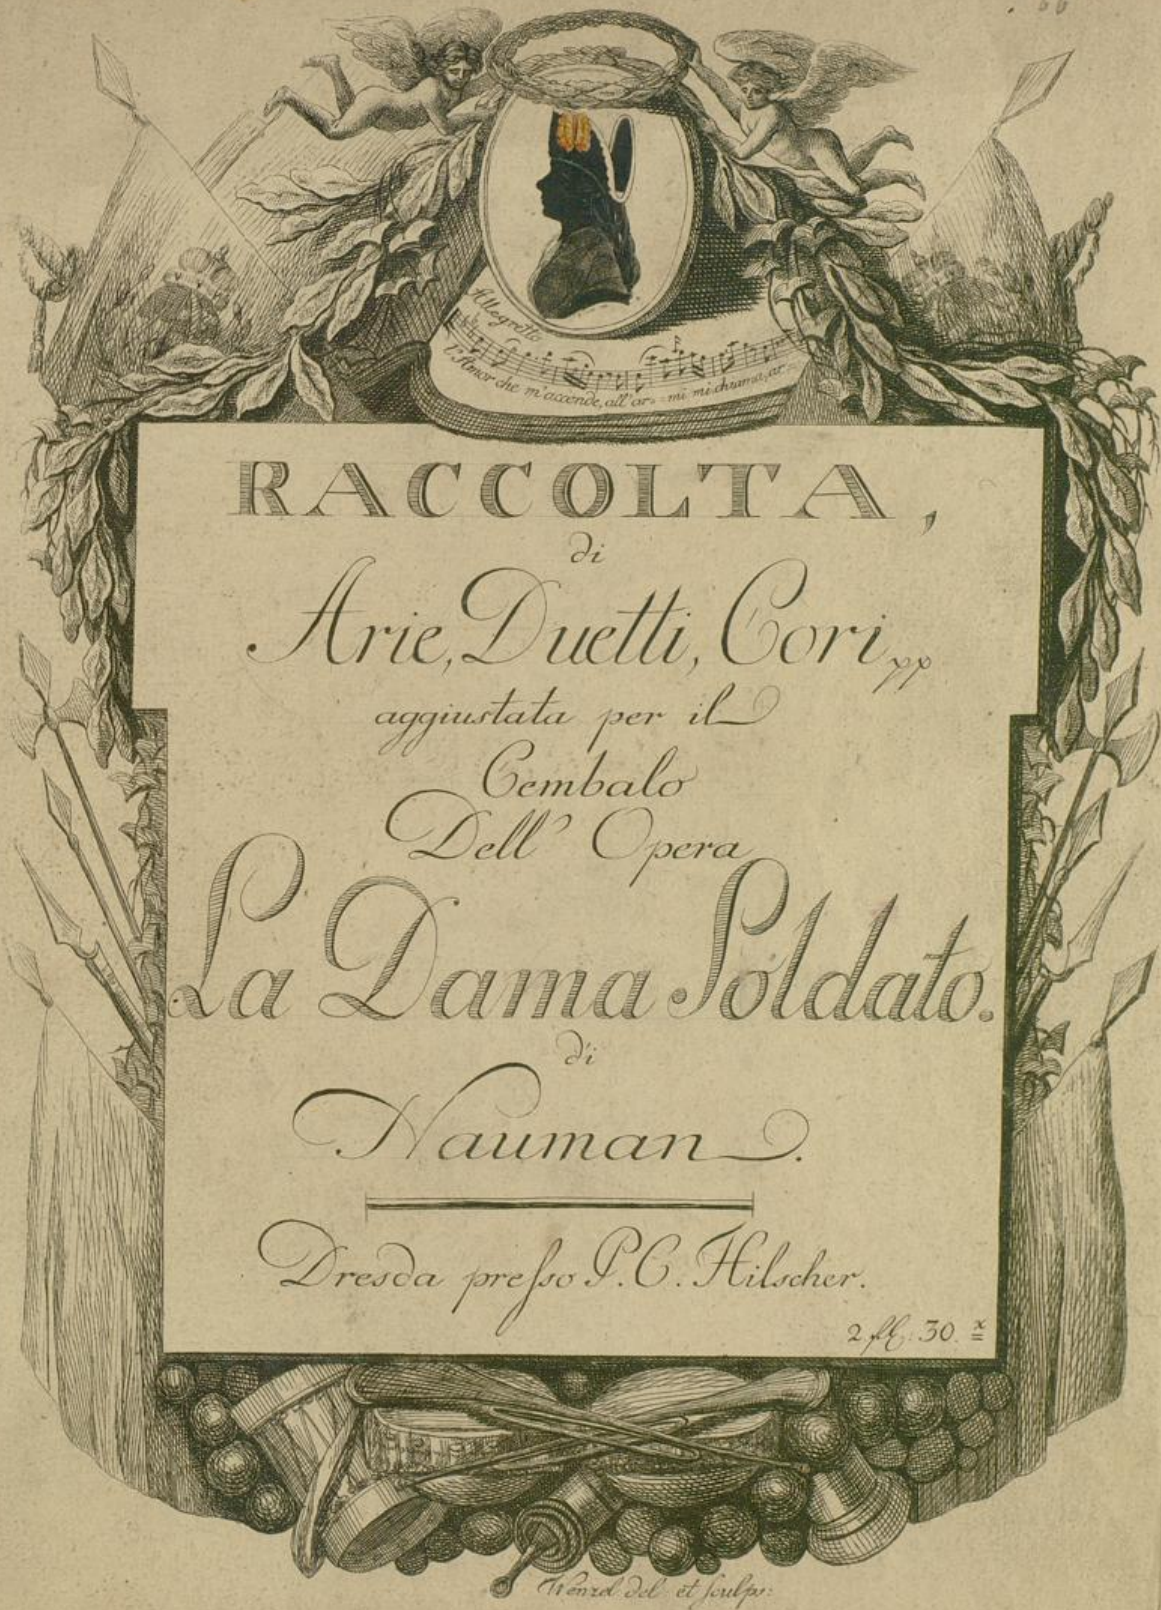 Allegretto
L'Amor che m'accende, all'ar = mi mi chiama, ar =
RACCOLTA,
di
Arie, Duetti, Cori pp
aggiustata per il
Cembalo
Dell' Opera
La Dama Soldato.
di
Nauman.
Dresda presso P. C. Hilscher.
2 fl. 30. x
Wenzel del et sculps: